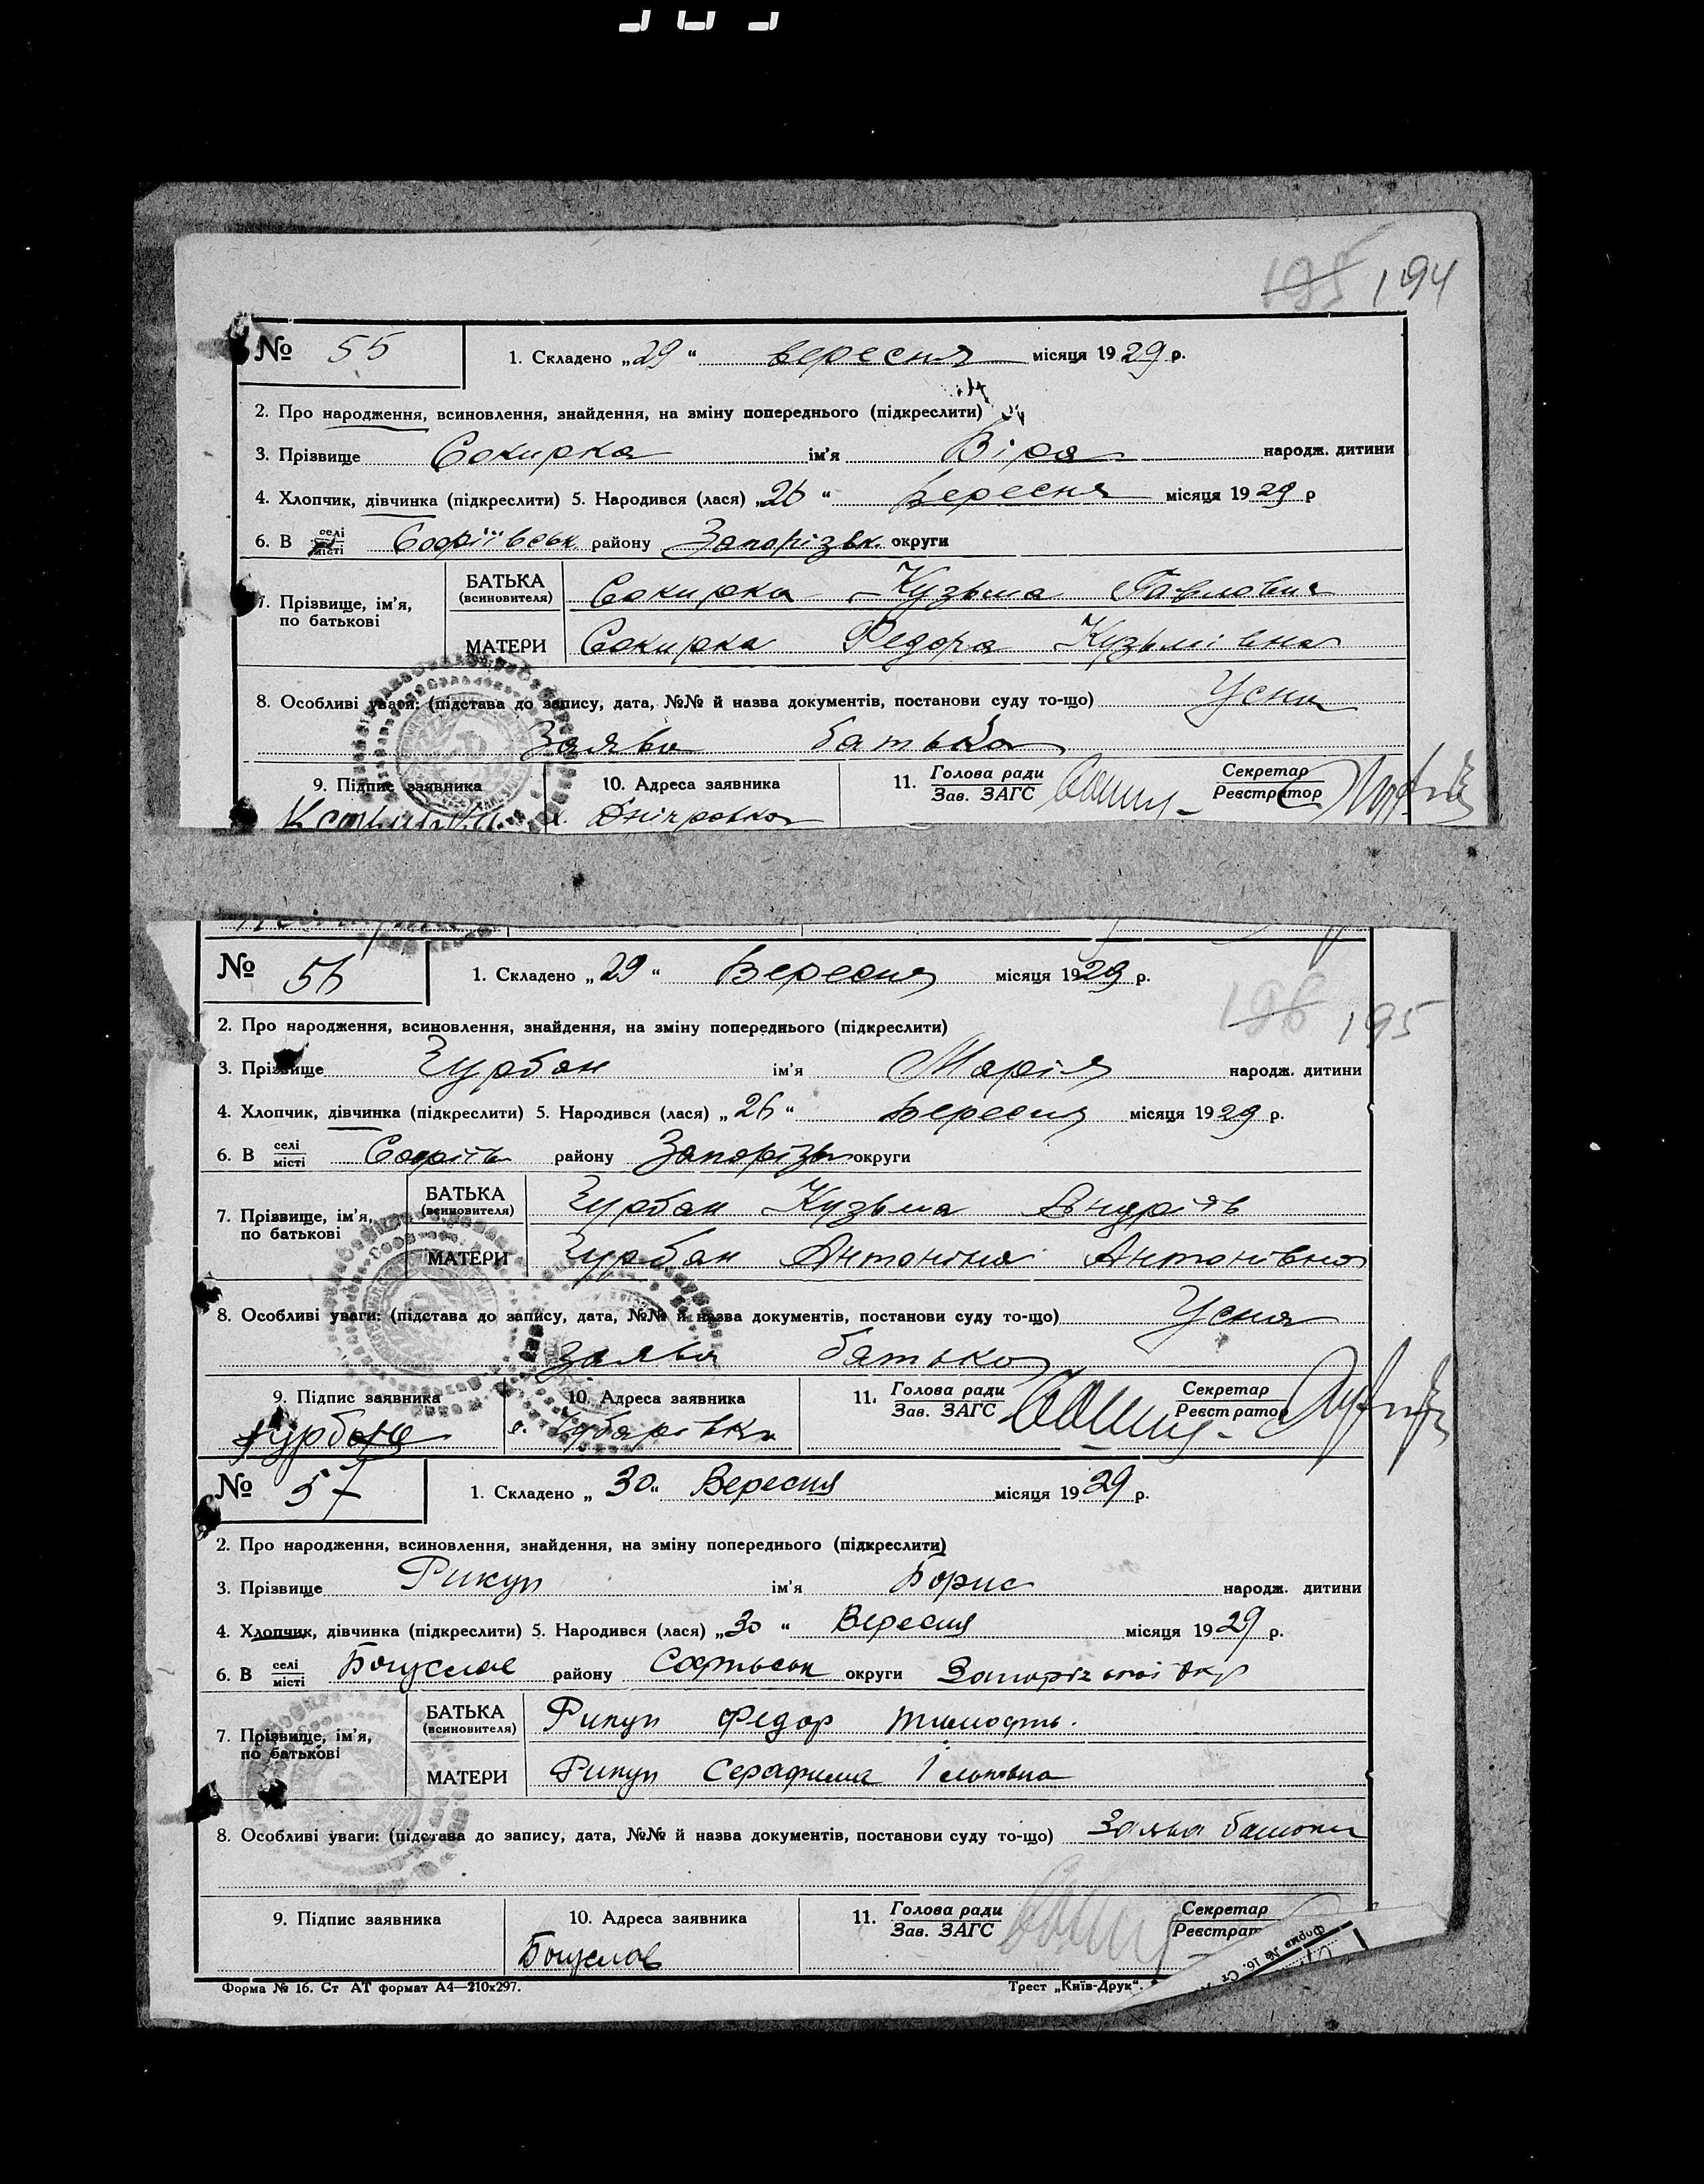 195 194
№ 55 1. Складено „29“ вересня місяця 1929 р.
2. Про народження, всиновлення, знайдення, на зміну попереднього (підкреслити)
3. Прізвище Сокирка ім'я Віра народж. дитини
4. Хлопчик, дівчинка (підкреслити) 5. Народився (лася) „26“ вересня місяця 1929 р
6. В селі місті Софіївськ. району Запорізьк. округи
7. Прізвище, ім'я, по батькові
БАТЬКА (всиновителя) Сокирка Кузьма Павлович
МАТЕРИ Сокирка Федора Кузьмівна
8. Особливі уваги: (підстава до запису, дата, №№ й назва документів, постанови суду то-що) Усна
Заява батька
9. Підпис заявника 10. Адреса заявника 11. Голова ради Зав. ЗАГС Секретар Реєстратор
х. Дніпровка
№ 56 1. Складено „29“ Вересня місяця 1929 р.
196 195
2. Про народження, всиновлення, знайдення, на зміну попереднього (підкреслити)
3. Прізвище Гурбан ім'я Марія народж. дитини
4. Хлопчик, дівчинка (підкреслити) 5. Народився (лася) „26“ Вересня місяця 1929 р.
6. В селі місті Софіїв району Запорізьк округи
7. Прізвище, ім'я, по батькові
БАТЬКА (всиновителя) Гурбан Кузьма Андріїв
МАТЕРИ Гурбан Антоніна Антонівна
8. Особливі уваги: (підстава до запису, дата, №№ й назва документів, постанови суду то-що) Усна
заява батька
9. Підпис заявника 10. Адреса заявника 11. Голова ради Зав. ЗАГС Секретар Реєстратор
№ 57 1. Складено „30“ Вересня місяця 1929 р.
2. Про народження, всиновлення, знайдення, на зміну попереднього (підкреслити)
3. Прізвище Рикун ім'я Борис народж. дитини
4. Хлопчик, дівчинка (підкреслити) 5. Народився (лася) „30“ Вересня місяця 1929 р.
6. В селі місті Богуслав району Софіївськ округи Запорізької окр
7. Прізвище, ім'я, по батькові
БАТЬКА (всиновителя) Рикун Федор Тимофіїв.
МАТЕРИ Рикун Серафима
8. Особливі уваги: (підстава до запису, дата, №№ й назва документів, постанови суду то-що) Заява батька
9. Підпис заявника 10. Адреса заявника 11. Голова ради Зав. ЗАГС Секретар Реєстрат
Богуслав
Форма № 16. Ст
Форма № 16. Ст АТ формат А4—210х297. Трест „Київ-Друк“.